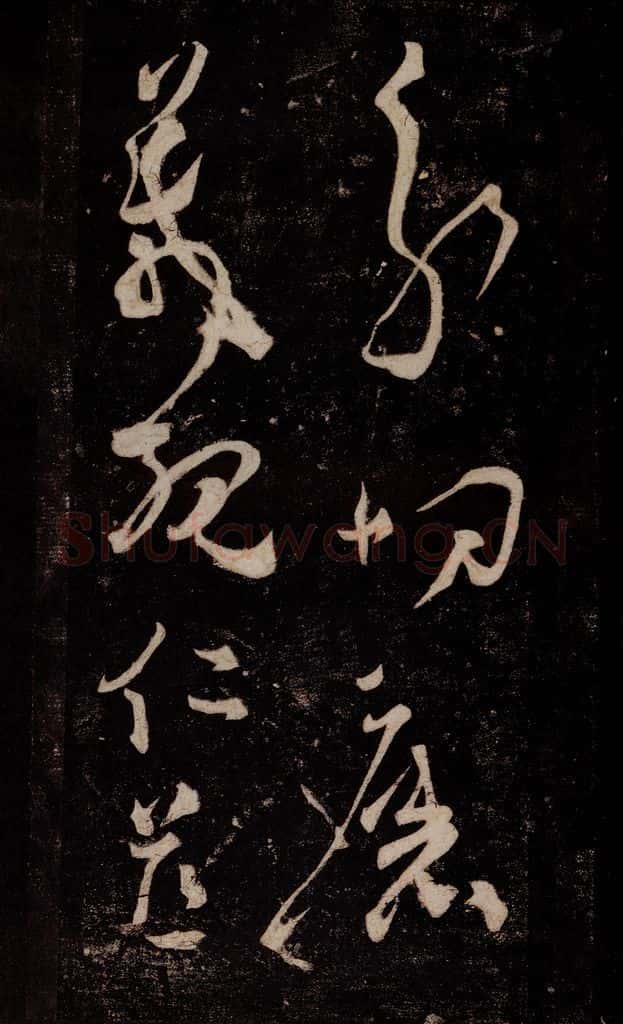 分切磨
箴規仁慈
Shufawang.CN